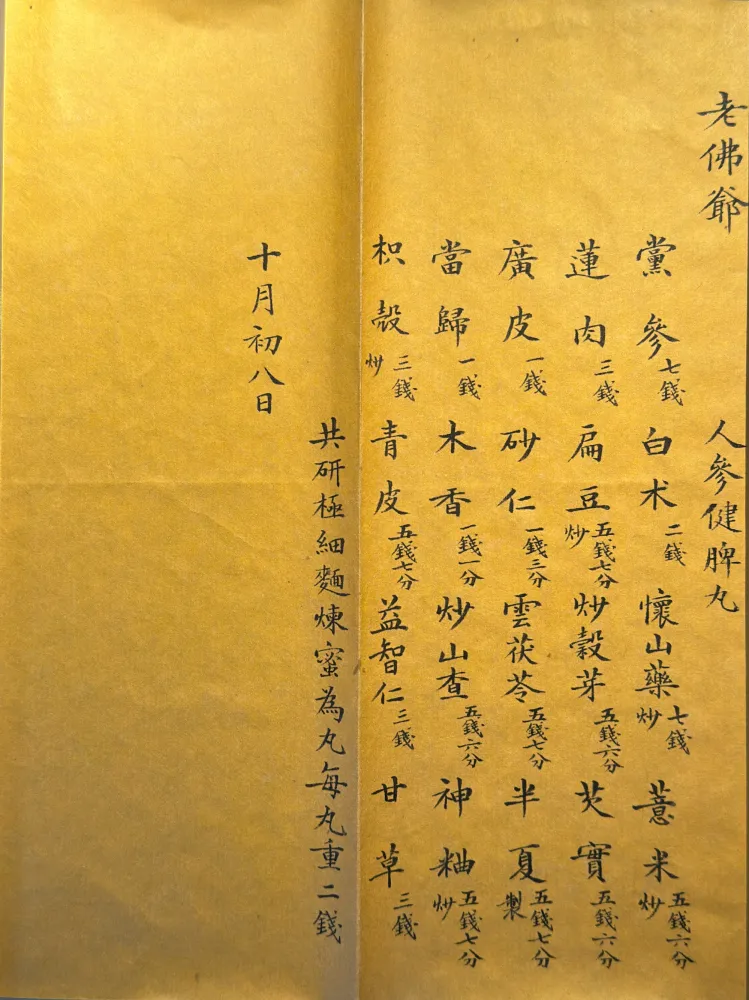 老佛爺
人參健脾丸
黨參七錢 白朮二錢 懷山藥炒七錢 薏米炒五錢六分
蓮肉三錢 扁豆炒五錢七分 炒穀芽五錢六分 芡實五錢六分
廣皮一錢 砂仁一錢三分 雲茯苓五錢七分 半夏製五錢七分
當歸一錢 木香一錢一分 炒山查五錢六分 神粬炒五錢七分
枳殼炒三錢 青皮五錢七分 益智仁三錢 甘草三錢
共研極細麵煉蜜為丸每丸重二錢
十月初八日